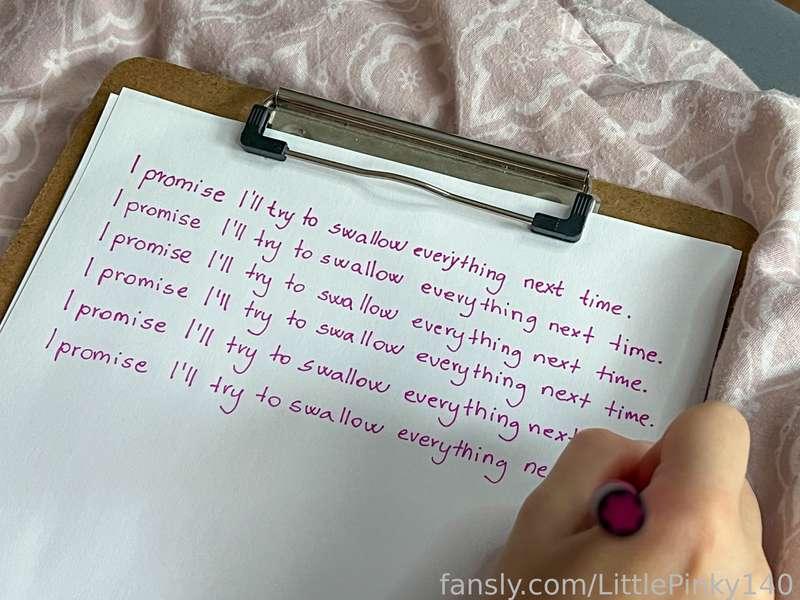 I promise I'll try to swallow everything next time.
I promise I'll try to swallow everything next time.
I promise I'll try to swallow everything next time.
I promise I'll try to swallow everything next time.
I promise I'll try to swallow everything next
I promise I'll try to swallow everything ne
fansly.com/LittlePinky140